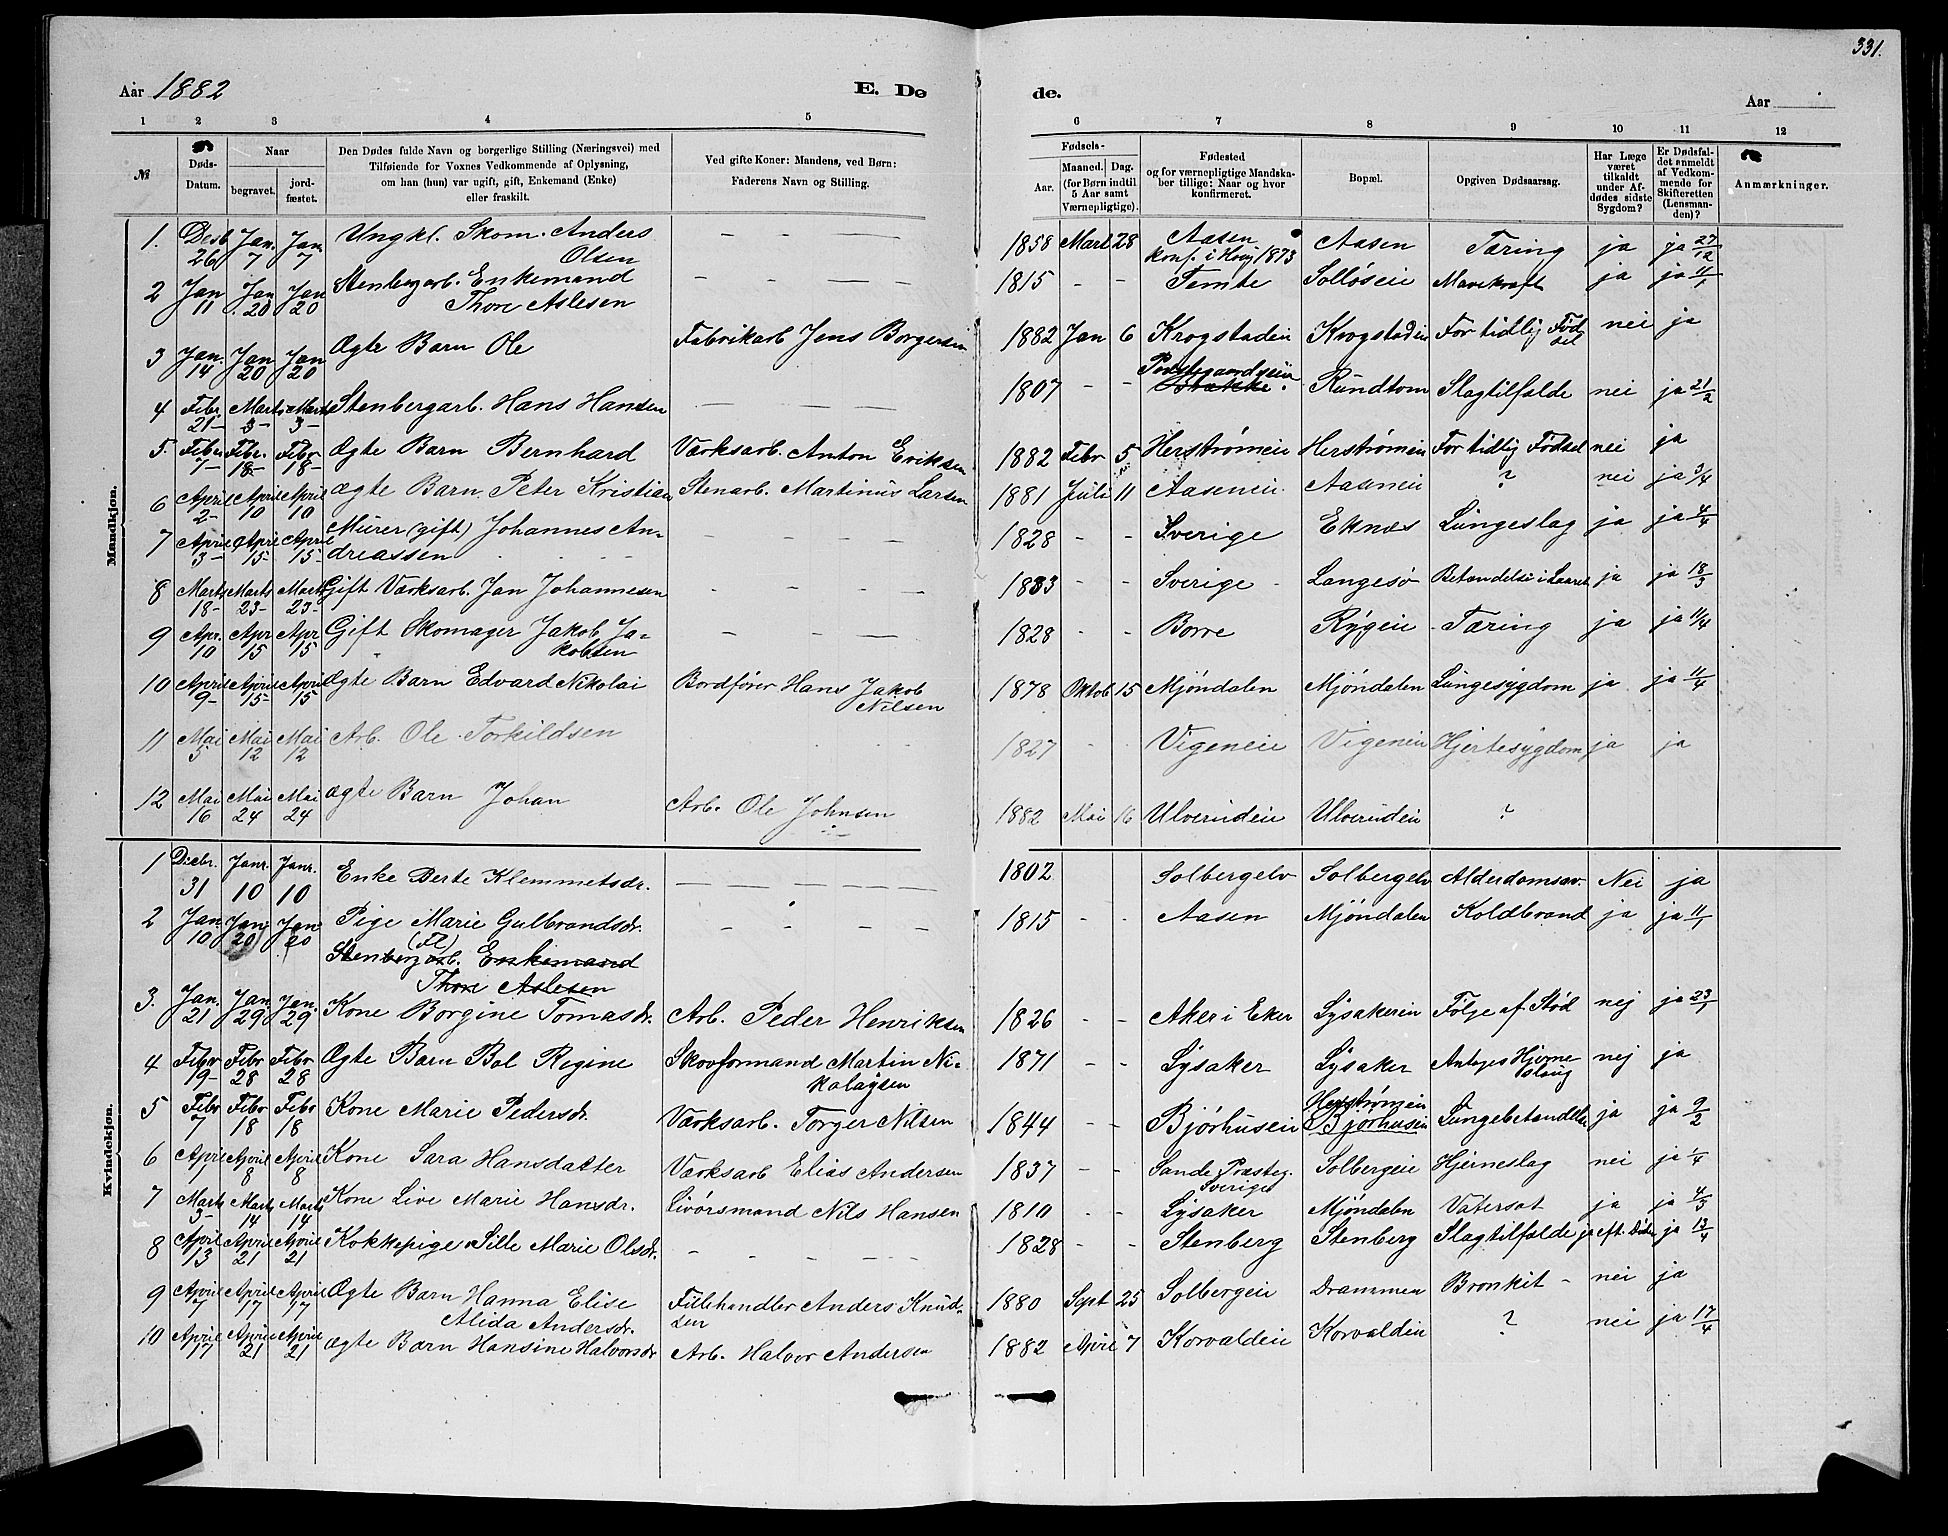 331.
Aar 1882 E. Dø de. Aar
1 2 3 4 5 6 7 8 9 10 11 12
№ Døds-Datum. Naar begravet. jordfæstet. Den Dødes fulde Navn og borgerlige Stilling (Næringsvei) med Tilføiende for Voxnes Vedkommende af Oplysning, om han (hun) var ugift, gift, Enkemand (Enke) eller fraskilt. Ved gifte Koner: Mandens, ved Børn: Faderens Navn og Stilling. Fødsels- Aar. Maaned. Dag. (for Børn indtil 5 Aar samt Værnepligtige). Fødested og for værnepligtige Mandskaber tillige: Naar og hvor konfirmeret. Bopæl. Opgiven Dødsaarsag. Har Læge været tilkaldt under Afdødes sidste Sygdom? Er Dødsfaldet anmeldt af Vedkommende for Skifteretten (Lensmanden)? Anmærkninger.
Mandkjøn.
1. Desb 26 Jan. 7 Jan. 7 Ungkl. Skom. Anders Olsen — — — 1858 Mart 28 Aasen konf. i Houg 1873 Aasen Tæring ja ja 27/12
2 Jan 11 Jan. 20 Jan 20 Stenbergarb. Enkemand Thore Aslesen - - — — 1815 - - Temte Solløseie Marekraft ja ja 11/1
3 Jan. 14 Jan 20 Jan 20 Ægte Barn Ole Fabrikarb Jens Borgersen 1882 Jan 6 Krogstadeie Krogstadeie For tidlig Fødsel nei ja
4 Febr. 21 Marts 3 Marts 3 Stenbergarb. Hans Hansen — — — 1807 - - Præstegaardseie Stakke. Rundtom Slagtilfælde nei ja 21/2
5. Febr 7 Febr. 18 Febr 18 Ægte Barn Bernhard Værksarb. Anton Eriksen 1882 Febr 5 Herstrømeie Herstrømeie For tidlig Fødsel nei ja
6 April 2 April 10 April 10 ægte Barn Peter Kristian Stenarb. Martinus Larsen 1881 Juli 11 Aaseneie Aaseneie ? nei ja 3/4
7 April 3 April 15 April 15 Murer (gift) Johannes Andreassen - - - - 1828 - - Sverige Eknæs Lungeslag ja ja 4/4
8 Marts 18 Marts 23 Marts 23 Gift Værksarb. Jan Johannesen - - - - 1833 - - Sverige Langesø Betændelse i Laaret ja ja 18/3
9 Apr. 10 Apr 15 Apr 15 Gift Skomager Jakob Jakobsen - - - - 1828 - - Borre Rygeie Tæring ja ja 11/4
10 April 9 April 15 April 15 Ægte Barn Edvard Nikolai Bordfører Hans Jakob Nilsen 1878 Oktob 15 Mjøndalen Mjøndalen Lungesygdom ja ja 11/4
11 Mai 5 Mai 12 Mai 12 Arb. Ole Torkildsen 1827 - - Vigeneie Vigeneie Hjertesygdom ja ja
12 Mai 16 Mai 24 Mai 24 ægte Barn Johan Arb. Ole Johnsen 1882 Mai 16 Ulverudeie Ulverudeie ?
Kvindekjøn.
1 Decbr. 31 Janr. 10 Janr. 10 Enke Berte Klemmetsdr. — — — — 1802 Solbergelv Solbergelv Alderdomsav. Nei ja
2 Jan. 10 Jan. 20 Jan 20 Pige Marie Gulbrandsdr. - - - - 1815 - - Aasen Mjøndalen Koldbrand ja ja 11/1
Stenbergarb. Enkemand
Thore Aslesen
3. Jan. 21 Jan. 29 Jan. 29 Kone Borgine Tomasdr. Arb. Peder Henriksen 1826 - - Aker i Eker Lysakereie Følge af Stød nej ja 23/1
4 Febr 19 Febr 28 Febr 28 Ægte Barn Bol Regine Skovformand Martin Nikolaysen 1871 - - Lysaker Lysaker Antages Hjerneslag nej ja
5 Febr 7 Febr 18 Febr 18 Kone Marie Pedersdr. Værksarb. Torger Nilsen 1844 - - Bjørhuseie Herstrømeie Bjørhuseie Lungebetændelse ja ja 9/2
6 April 1 April 8 April 8 Kone Sara Hansdatter Værksarb Elias Andersen 1837 - - Sande Præsteg. Sverige Solbergeie Hjerneslag nei ja 1/4
7 Marts 3 Marts 14 Marts 14 Kone Live Marie Hansdr. Livørsmand Nils Hansen 1810 - - Lysaker Mjøndalen Vatersot ja ja 4/3
8 April 13 April 21 April 21 Kokkepige Sille Marie Olsdr. - - - - 1828 - - Stenberg Stenberg Slagtilfælde ja eft. Døden ja 13/4
9 April 7 April 17 April 17 Ægte Barn Hanna Elise Alida Andersdr. Fillehandler Anders Knudsen 1880 Sept 25 Solbergeie Drammen Bronkit - nei ja
10 April 17 April 21 April 21 ægte Barn Hansine Halvorsdr Arb. Halvor Andersen 1882 April 7 Korvaldeie Korvaldeie ? nei ja 17/4